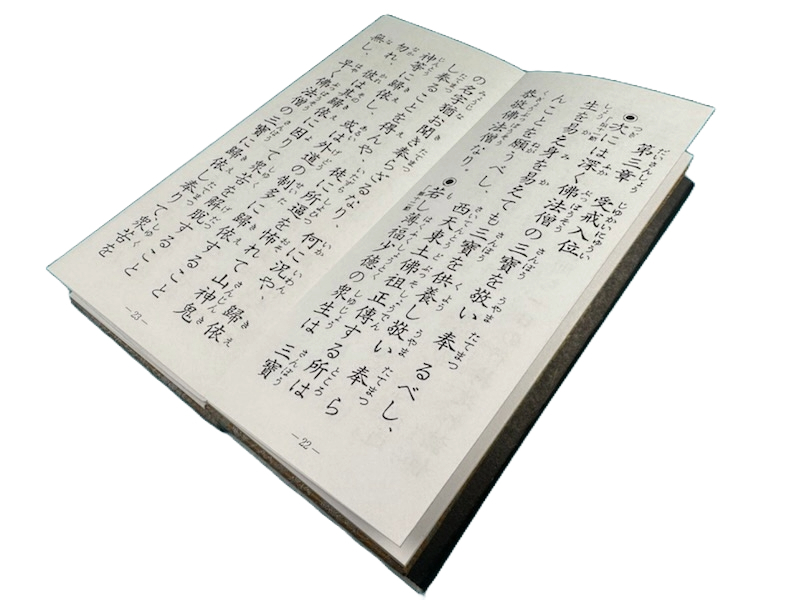 第三章 受戒入位
●次には深く佛法僧の三寶を敬い奉るべし、
生を易え身を易えても三寶を供養し敬い奉ら
んことを願うべし、西天東土佛祖正傳する所は
恭敬佛法僧なり。
●若し薄福少德の衆生は三寶
—22—
の名字猶お聞き奉らざるなり、何に況や、歸依
し奉ることを得んや、徒に所逼を怖れて山神鬼
神等に歸依し、或は外道の制多に歸依すること
勿れ、彼は其歸依に因りて衆苦を解脫すること
無し、早く佛法僧の三寶に歸依し奉りて衆苦を
—23—